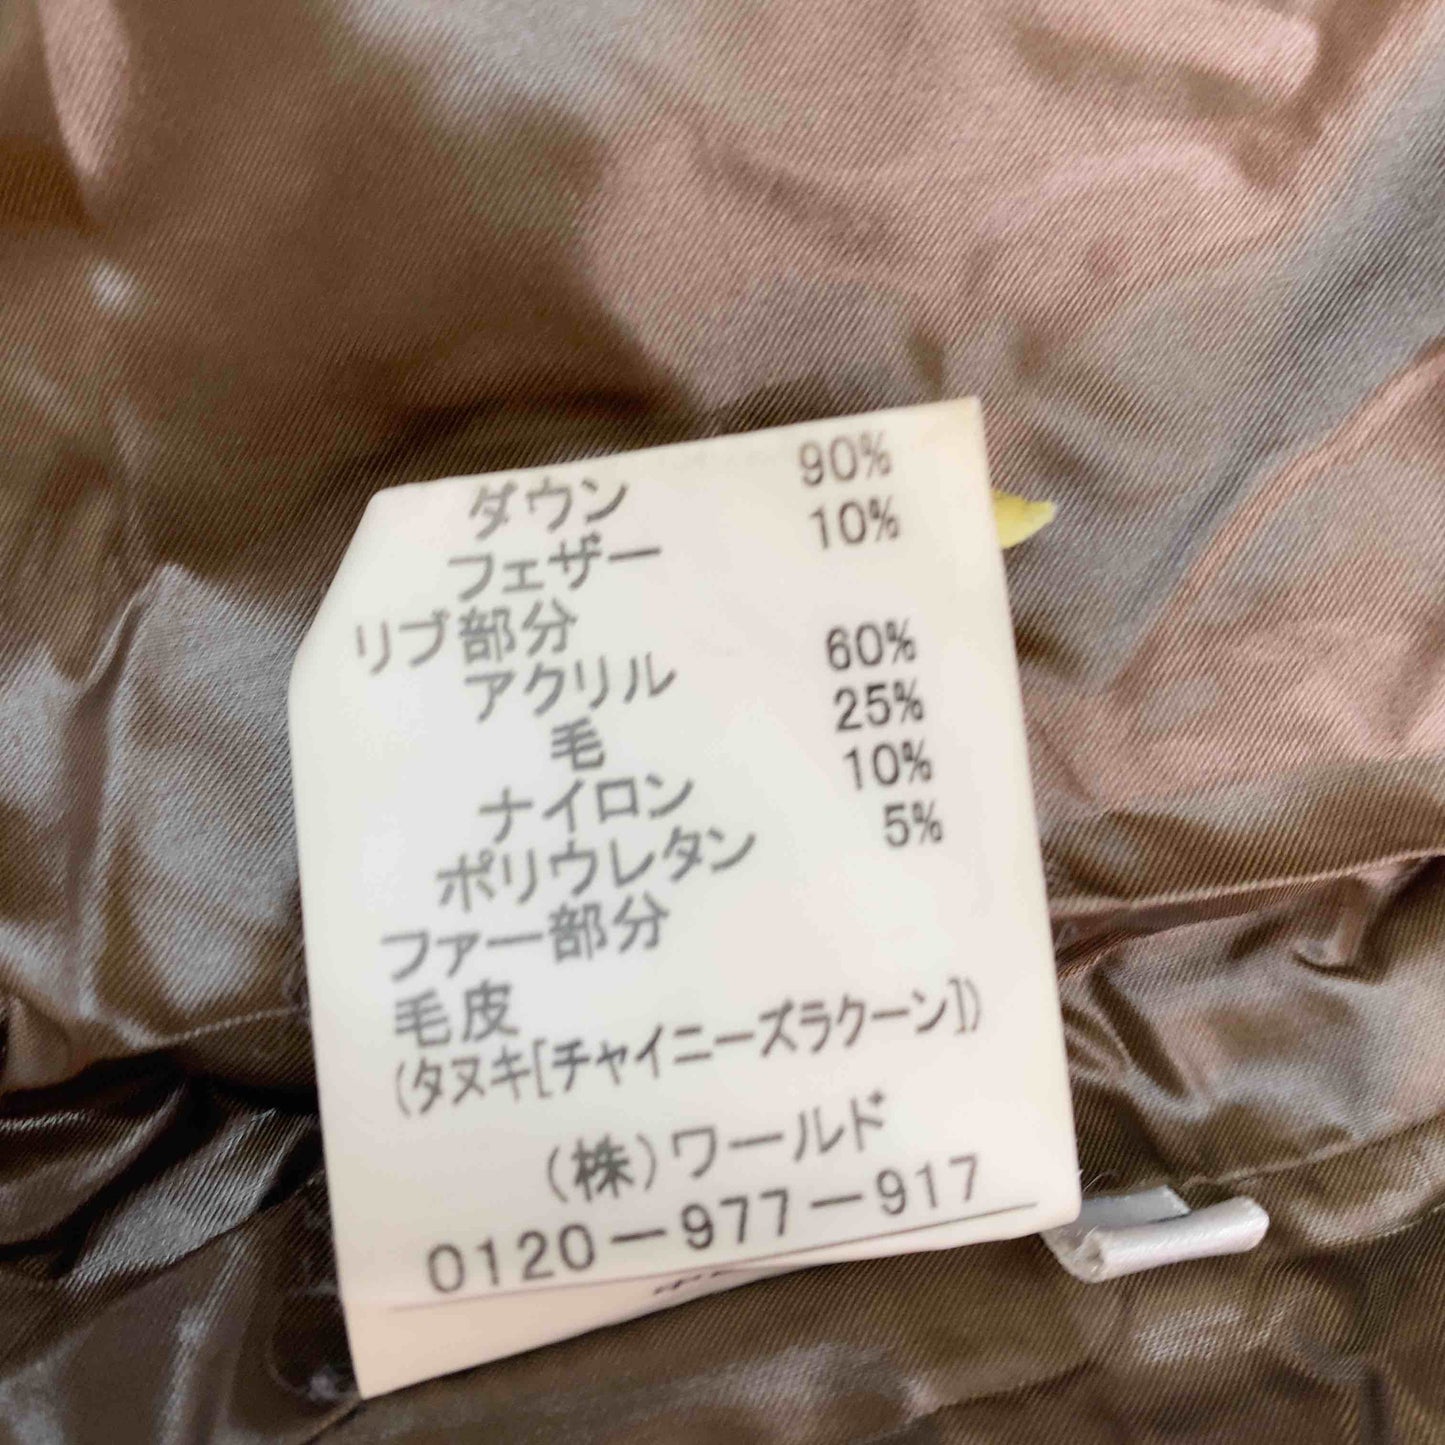 ダウン 90%
フェザー 10%
リブ部分
アクリル 60%
毛 25%
ナイロン 10%
ポリウレタン 5%
ファー部分
毛皮
(タヌキ[チャイニーズラクーン])
(株)ワールド
0120-977-917